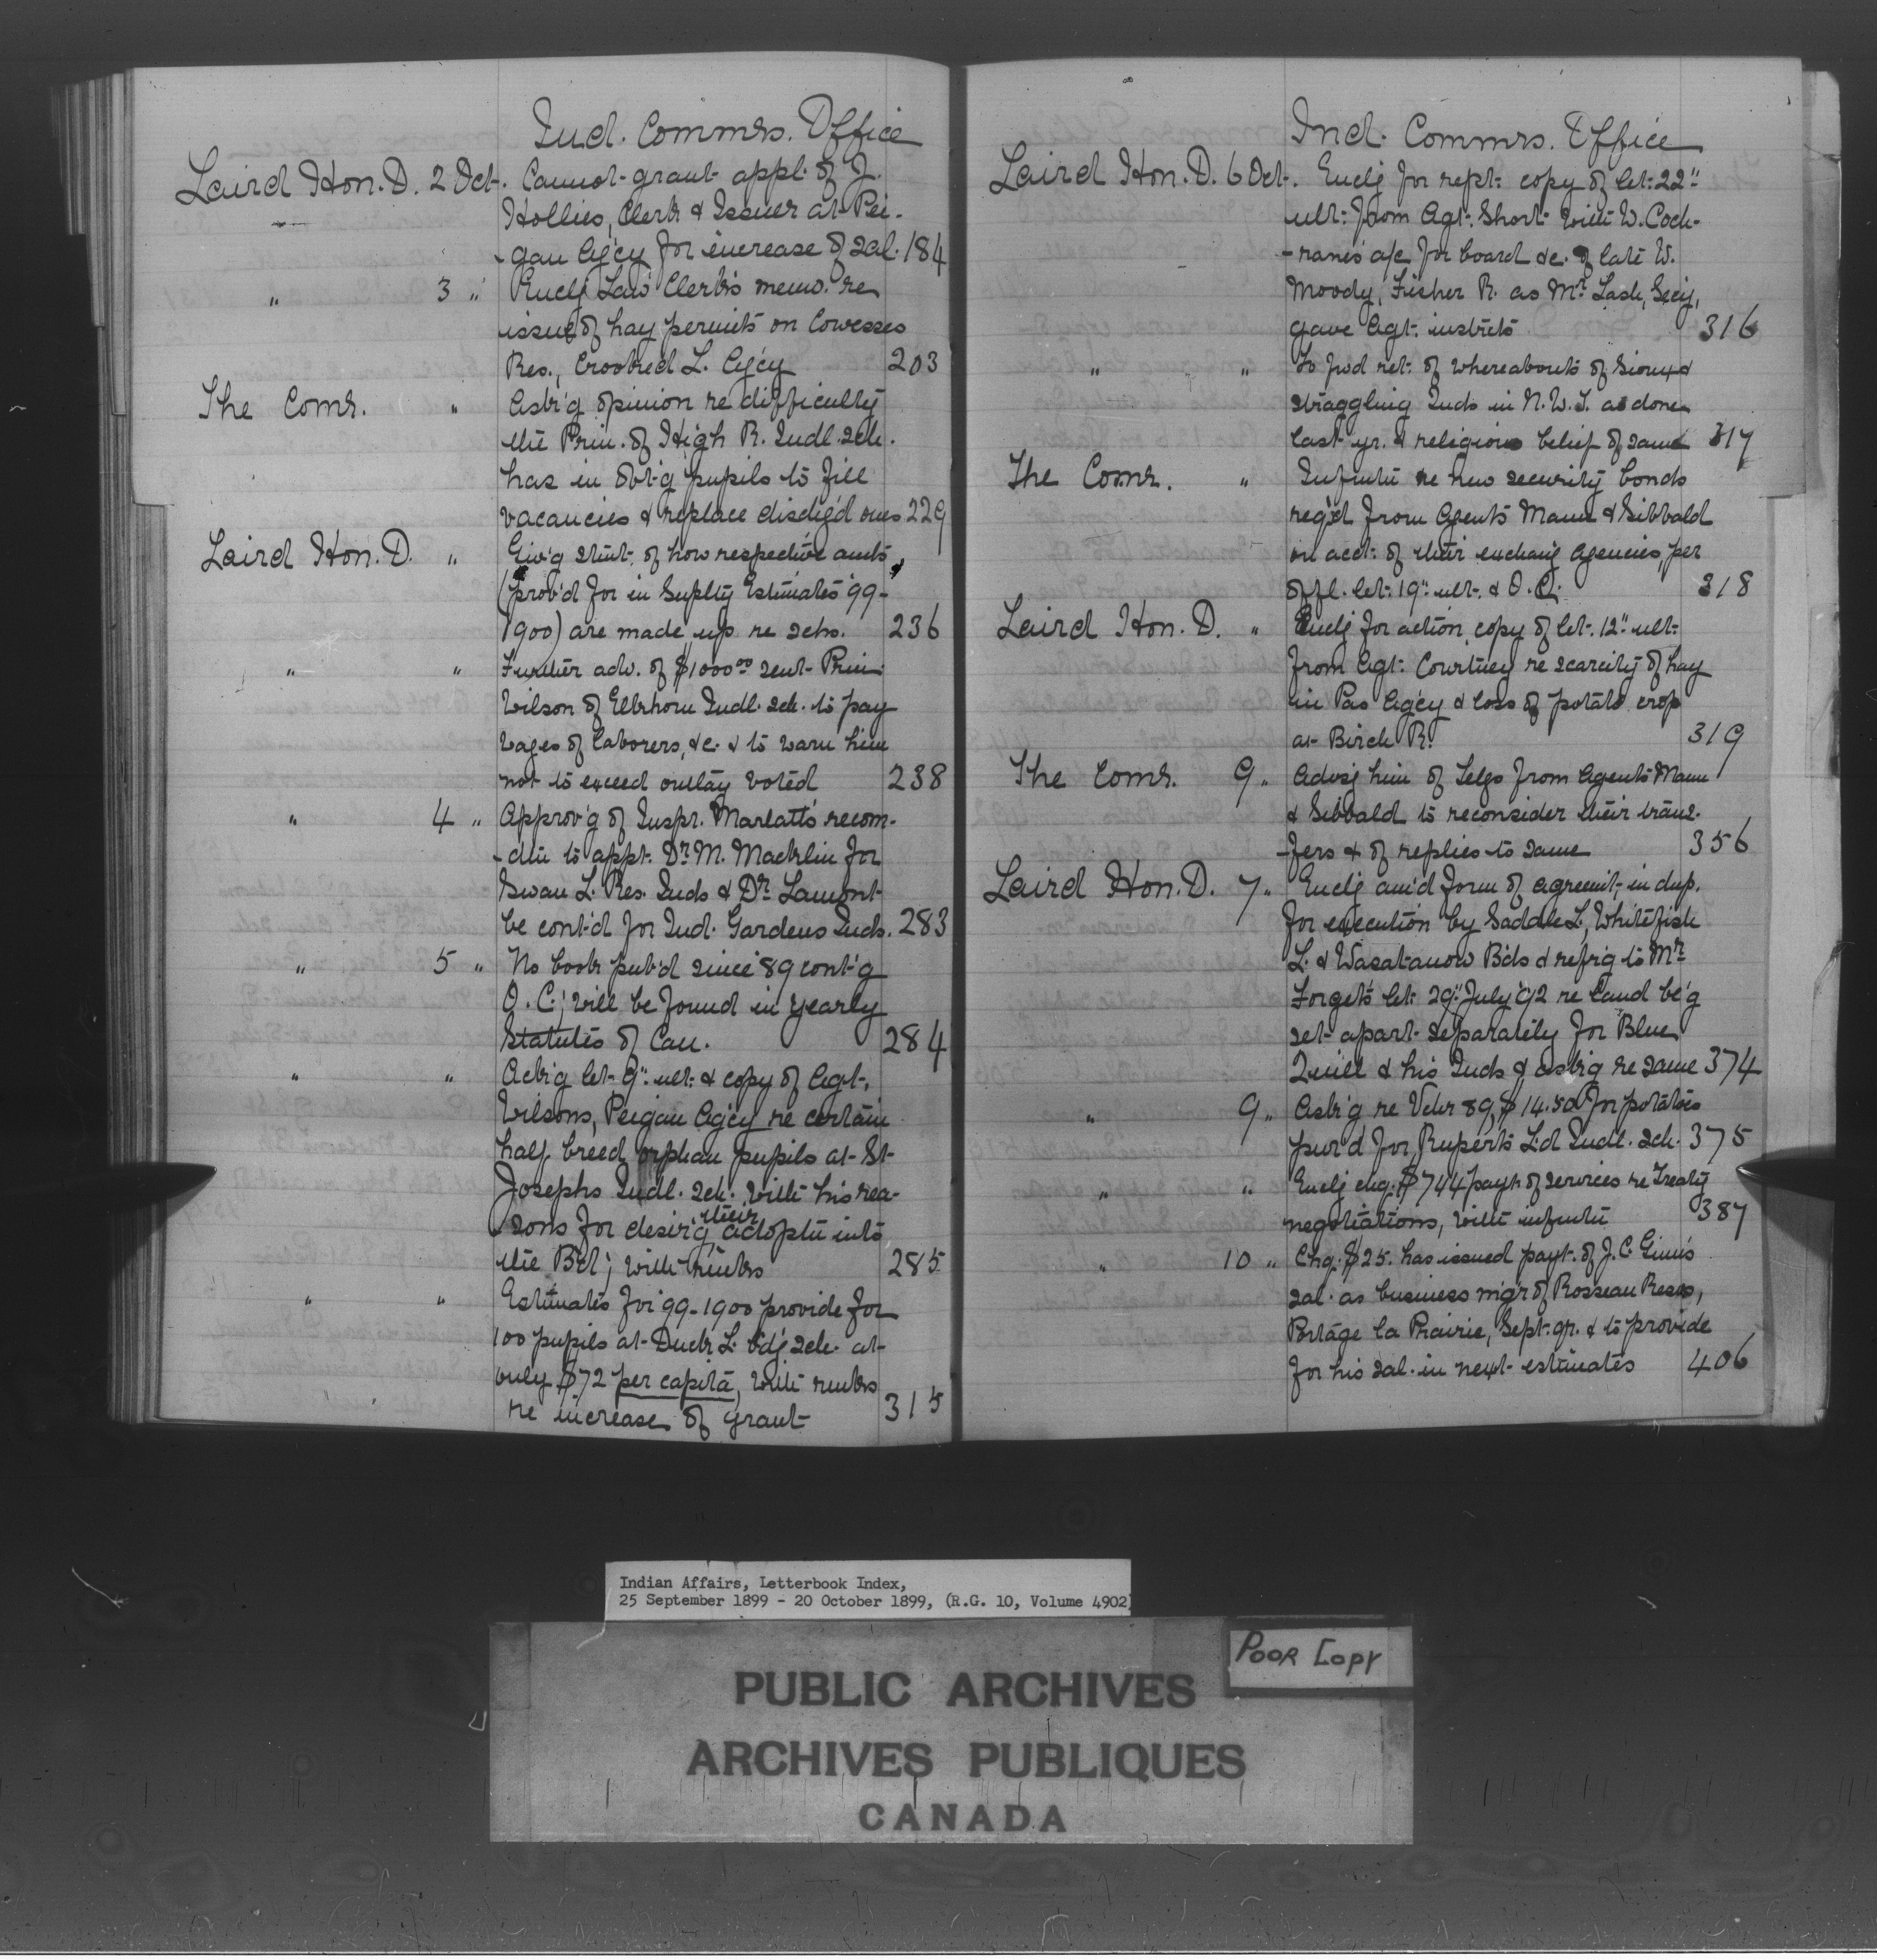 Ind. Commrs. Office
Laird Hon. D. 2 Oct. Cannot grant appl. of J.
Hollies, Clerk & Issuer at Pei-
-gan Ag'cy for increase of sal. 184
" 3 " Enclg Law Clerk's memo. re
issue of hay permits on Cowesses
Res., Crooked L. Ag'cy 203
The Comr. " Ask'g opinion re difficulty
the Prin. of High R. Indl. sch.
has in obt'g pupils to fill
vacancies & replace disch'd ones 229
Laird Hon. D. " Giv'g stmt. of how respective amts
(prov'd for in Suplty Estimates '99-
1900) are made up re schs. 236
" " Further adv. of $1000.00 sent Prin.
Wilson of Elkhorn Indl. sch. to pay
wages of laborers, &c. & to warn him
not to exceed outlay voted 238
" 4 " Approv'g of Inspr. Marlatt's recom-
-dtn to appt. Dr. M. Macklin for
Swan L. Res. Inds & Dr. Lamont
be cont'd for Ind. Gardens Inds. 283
" 5 " No book pub'd since '89 cont'g
O. C.; will be found in yearly
Statutes of Can. 284
" " Ack'g let. 9" ult. & copy of Agt.
Wilsons, Peigan Ag'cy re certain
half breed orphan pupils at St.
Josephs Indl. sch. with his rea-
sons for desir'g their adoptn into
the Bd; with rmks 285
" " Estimates for '99-1900 provide for
100 pupils at Duck L. b'd'g sch. at
only $72 per capita, with rmks
re increase of grant 315
Ind. Commrs. Office
Laird Hon. D. 6 Oct. Enclg for rept. copy of let. 22"
ult. from Agt. Short with W. Coch-
-rane's a/c for board &c. of late W.
Moody, Fisher R. as Mr. Lash, Sec'y,
gave Agt. instrcts 316
" " To fwd ret. of whereabouts of Sioux &
straggling Inds in N.W.T. as done
last yr. & religious belief of same 317
The Comr. " Infmtn re new security bonds
req'd from Agents Mann & Sibbald
on acct. of their exchang agencies, per
offl. let. 19" ult. & O.C. 318
Laird Hon. D. " Enclg for action, copy of let. 12" ult.
from Agt. Courtney re scarcity of hay
in Pas Ag'cy & loss of potato crop
at Birch R. 319
The Comr. 9 " Advsg him of Telgs from Agents Mann
& Sibbald to reconsider their trans-
-fers & of replies to same 356
Laird Hon. D. 7 " Enclg am'd form of agreemt. in dup.
for execution by Saddle L., Whitefish
L. & Wasatanow B'ds & refr'g to Mr.
Forget's let. 29" July '92 re land be'g
set apart separately for Blue
Quill & his Inds & ask'g re same 374
" 9 " Ask'g re Vchr 89, $14.50 for potatoes
pur'd for Rupert's L'd Indl. sch. 375
" " Enclg chq. $744 paymt of services re Treaty
negotiations, with infmtn 387
" 10 " Chq. $25. has issued paymt. of J. C. Ginn's
sal. as business mg'r of Rosseau Reses,
Portage la Prairie, Sept. qr. & to provide
for his sal. in next estimates 406
Indian Affairs, Letterbook Index,
25 September 1899 - 20 October 1899, (R.G. 10, Volume 4902)
POOR COPY
PUBLIC ARCHIVES
ARCHIVES PUBLIQUES
CANADA